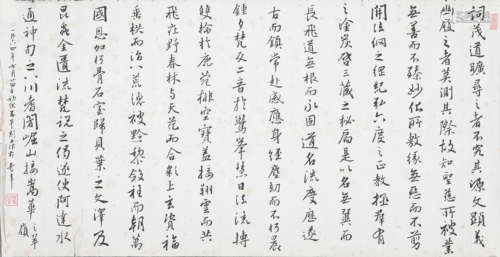 詞茂道曠尋之者不究其源文顯義
幽履之者莫測其際故知聖慈所被業
無善而不臻妙化所敷緣無惡而不剪
開法網之綱紀弘六度之正教拯羣有
之塗炭啓三藏之秘扃是以名無翼而
長飛道無根而永固道名流慶歷遂
古而鎮常赴感應身經塵劫而不朽晨
鐘夕梵交二音於鷲峯慧日法流轉
雙輪於鹿苑排空寶蓋接翔雲而共
飛莊野春林與天花而合彩上玄資福
垂拱而治八荒德被黔黎斂衽而朝萬
國恩加朽骨石室歸貝葉之文澤及
昆蟲金匱流梵說之偈遂使阿達水
通神甸之八川耆闍崛山接嵩華之翠嶺
一九八四年七月